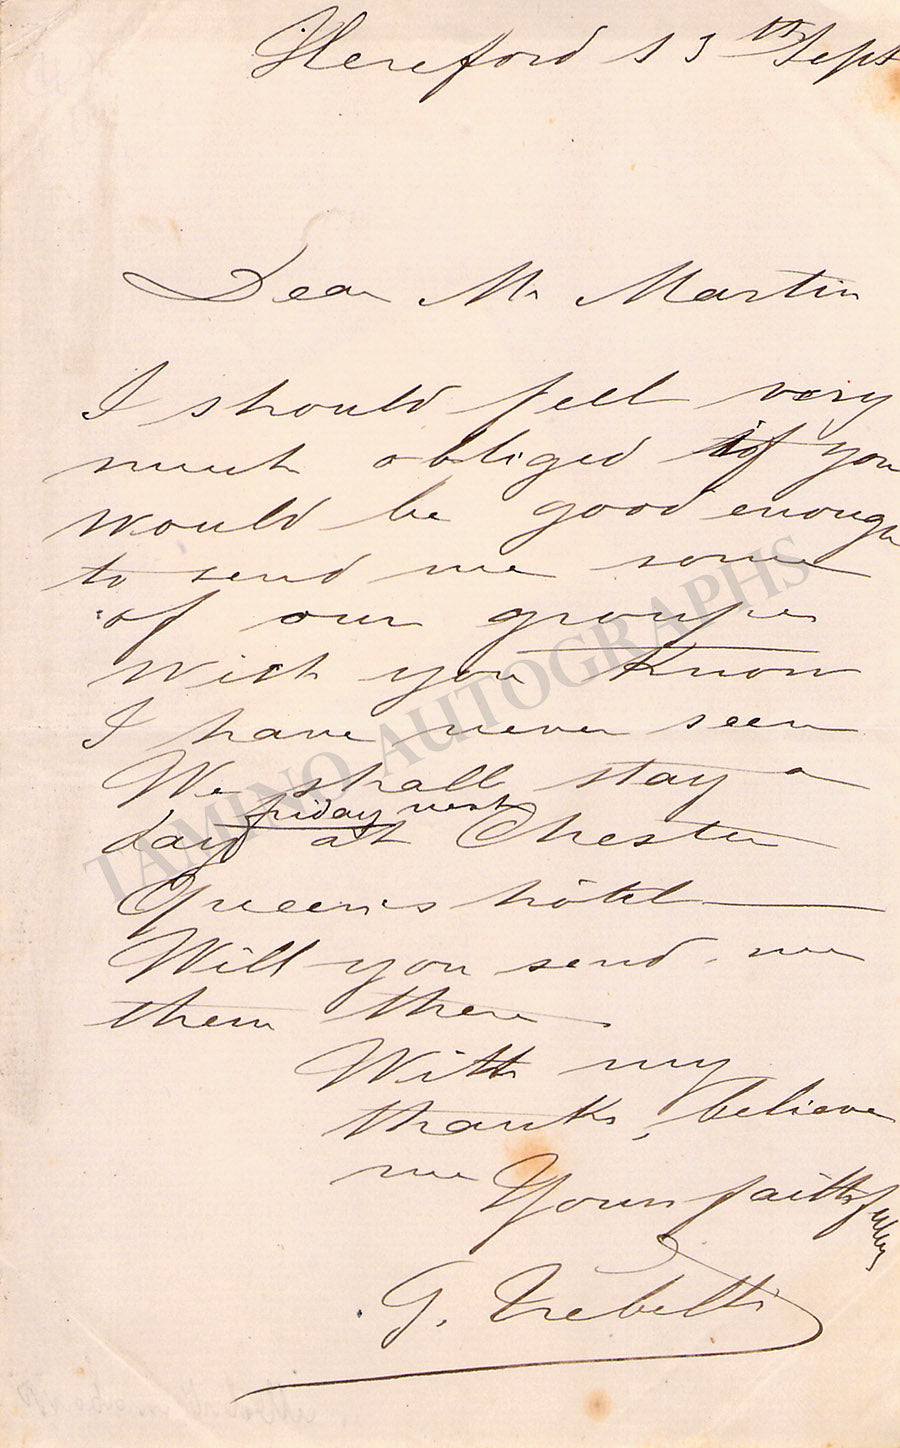 Hereford 13th Sept
Dear Mr Martin
I should feel very
much obliged if you
would be good enough
to send me some
of our groupes
Wich you Know
I have never seen
We shall stay a
friday next
day at Chester
Queens hôtel
Will you send me
them there
With my
thanks, believe
me Yours faithfully
G. Trebelli
TAMINO AUTOGRAPHS